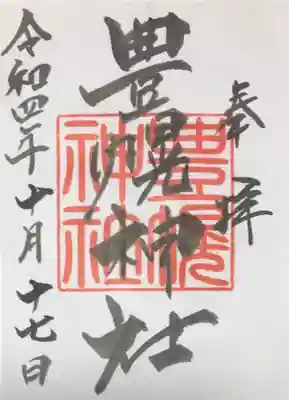 奉拝
豊幌神社
豊幌
神社
令和四年十月十七日